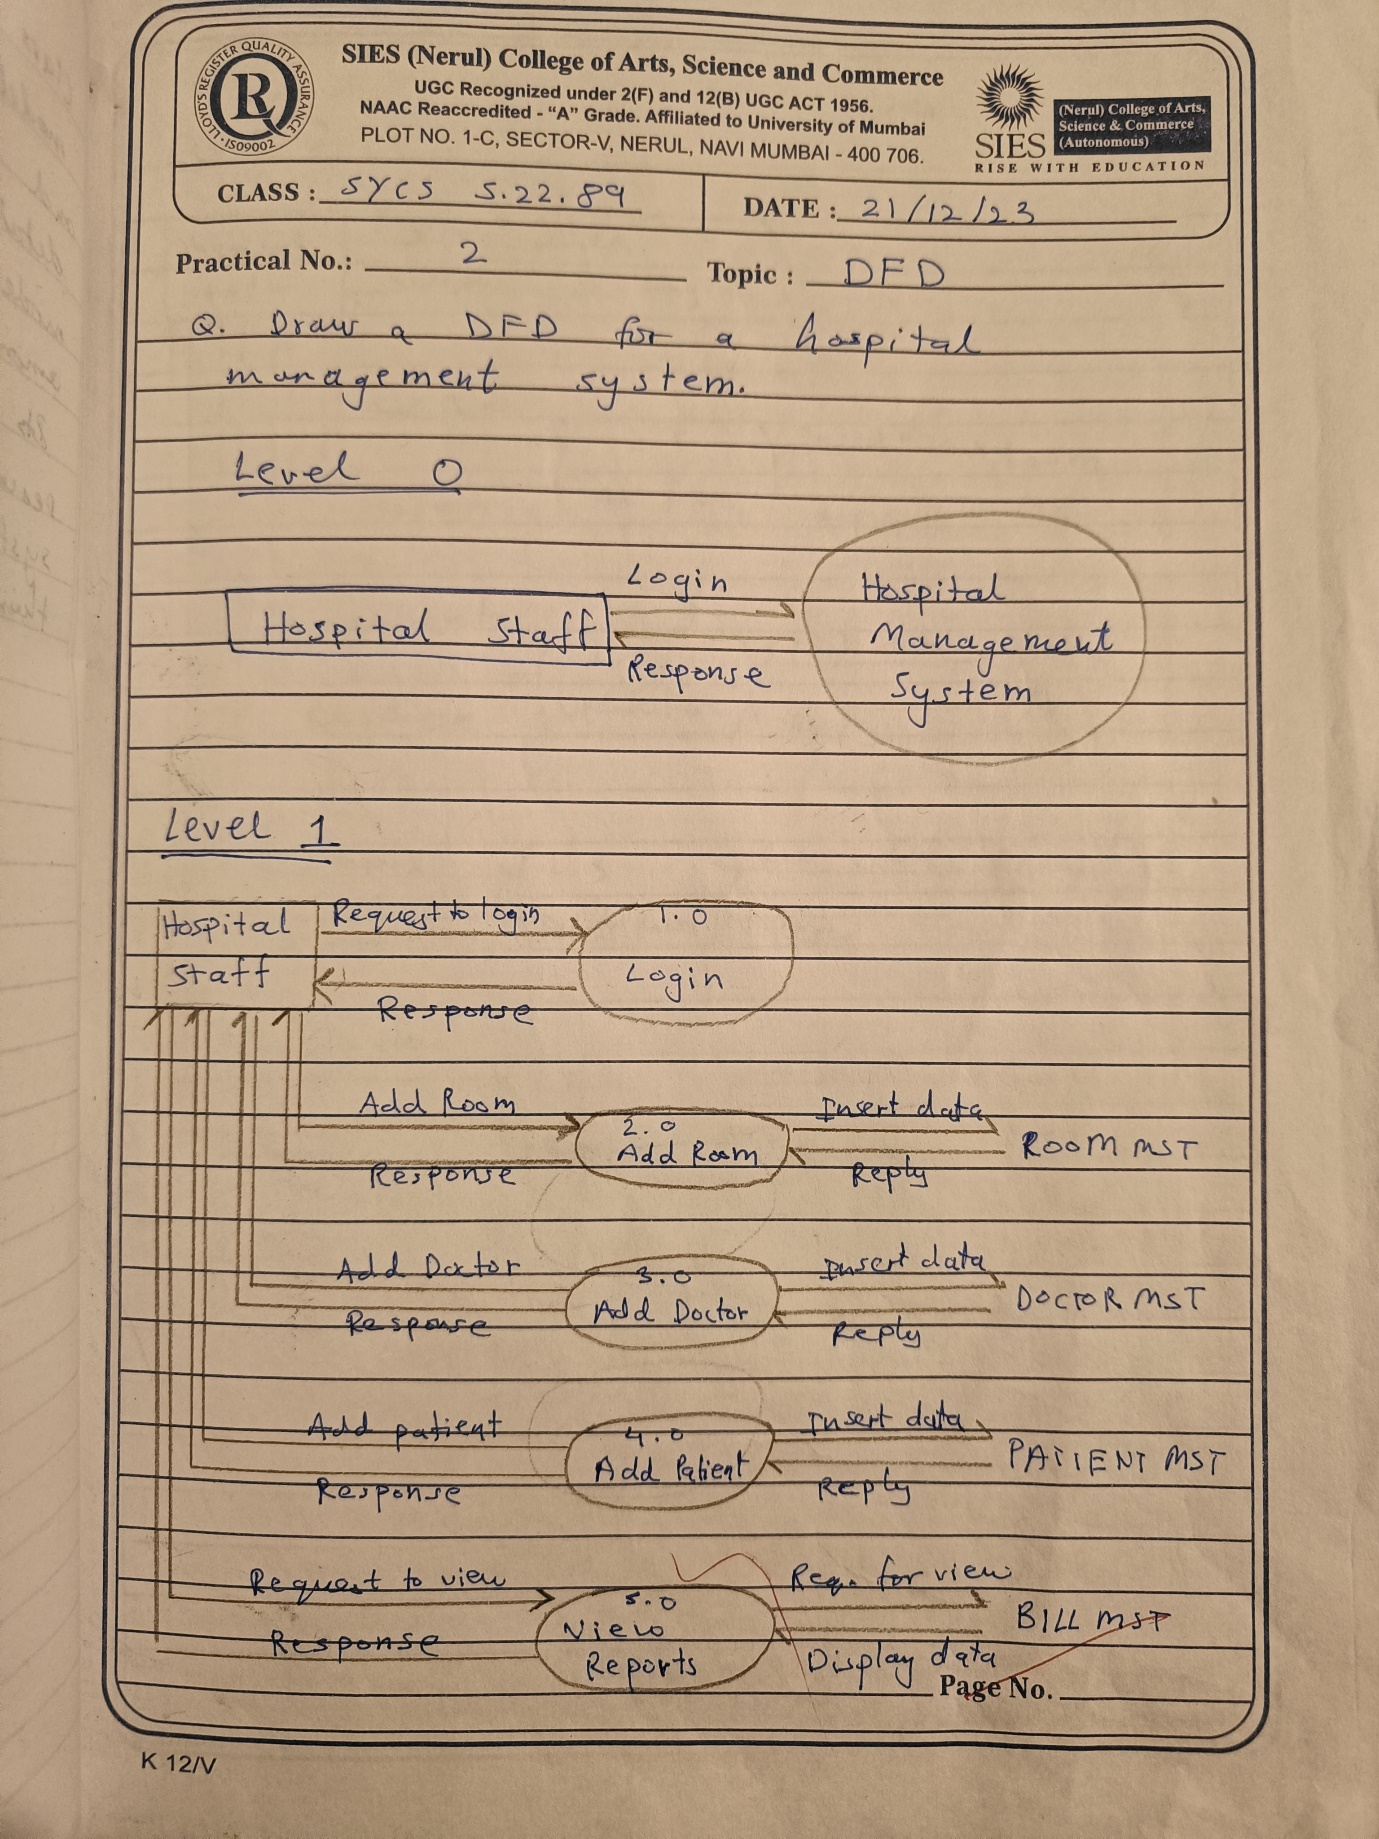 LLOYD'S REGISTER QUALITY ASSURANCE
ISO9002
SIES (Nerul) College of Arts, Science and Commerce
UGC Recognized under 2(F) and 12(B) UGC ACT 1956.
NAAC Reaccredited - “A” Grade. Affiliated to University of Mumbai
PLOT NO. 1-C, SECTOR-V, NERUL, NAVI MUMBAI - 400 706.
SIES
(Nerul) College of Arts,
Science & Commerce
(Autonomous)
RISE WITH EDUCATION
CLASS : SYCS S.22.89
DATE : 21/12/23
Practical No.: 2
Topic : DFD
Q. Draw a DFD for a hospital
management system.
Level 0
Login
Hospital Staff
Response
Hospital
Management
System
Level 1
Hospital
Staff
Request to login
Response
1.0
Login
Add Room
Response
2.0
Add Room
Insert data
Reply
ROOM MST
Add Doctor
Response
3.0
Add Doctor
Insert data
Reply
DOCTOR MST
Add patient
Response
4.0
Add Patient
Insert data
Reply
PATIENT MST
Request to view
Response
5.0
View
Reports
Req. for view
Display data
BILL MST
Page No.
K 12/V